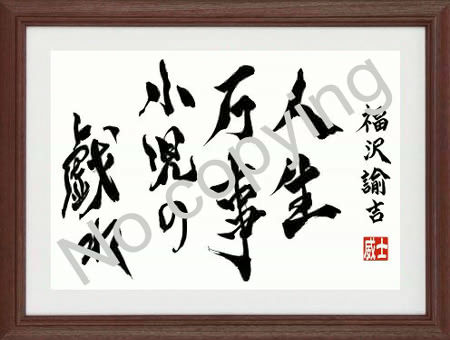 福沢諭吉
威士
人生
万事
小児の
戯れ
No copying